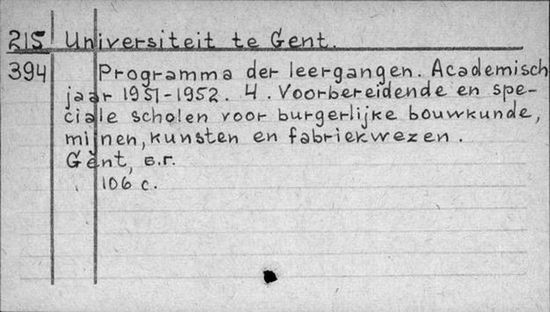 215 Universiteit te Gent.
394 Programma der leergangen. Academisch
jaar 1951-1952. 4. Voorbereidende en spe-
ciale scholen voor burgerlijke bouwkunde,
mijnen, kunsten en fabriekwezen.
Gent, s.r.
106 c.